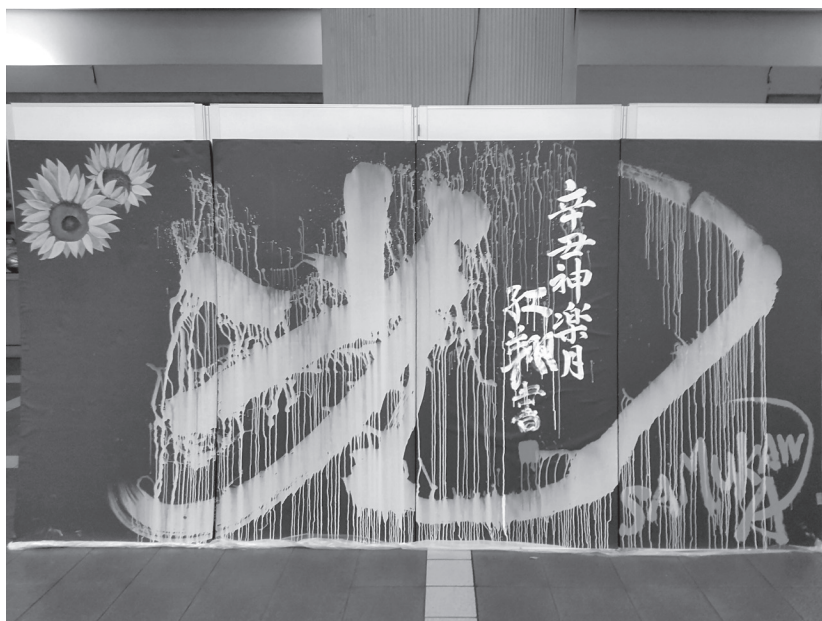 光
辛丑神楽月
紅翔書
SAMUKAWA